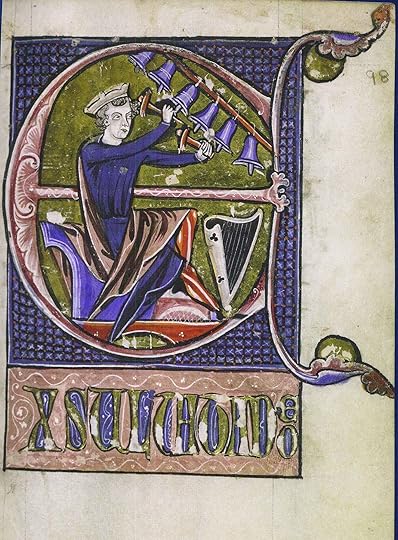 98
E
XSULTATE DEO